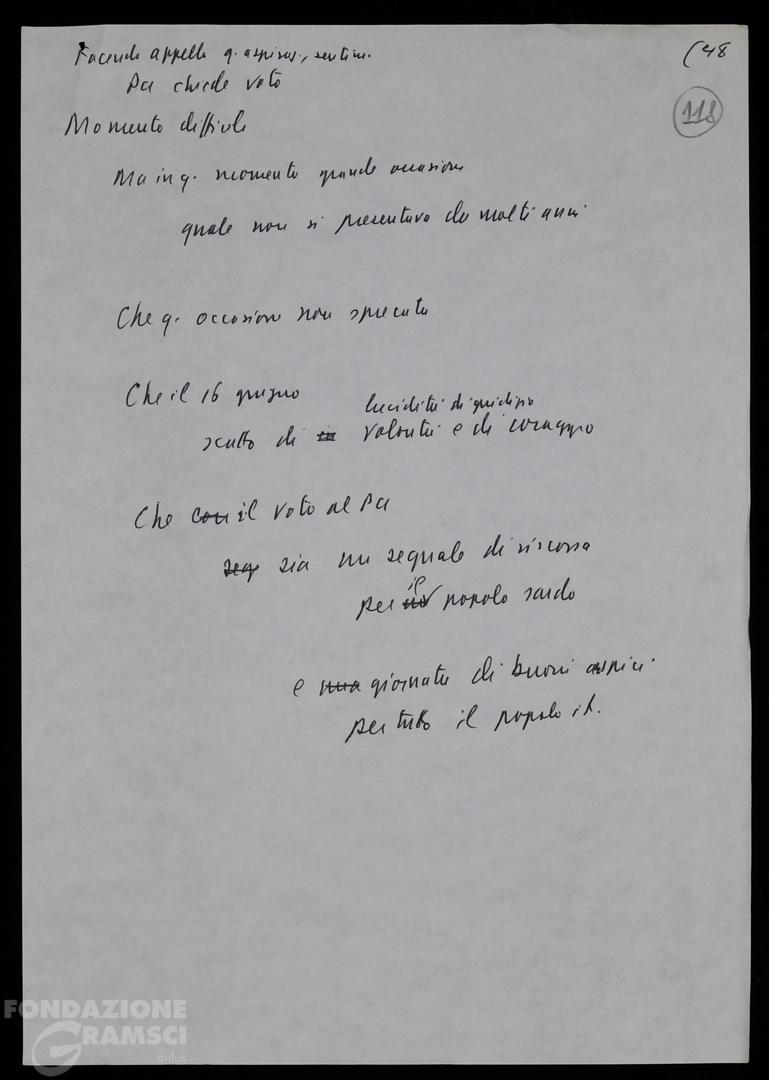 Facendo appello q. aspiraz., sentim. (48
Pci chiede voto 118
Momento difficile
Ma in q. momento grande occasione
quale non si presentava da molti anni
Che q. occasione non sprecata
Che il 16 giugno
lucidità di giudizio
scatto di in volontà e di coraggio
Che con il voto al Pci
seg sia un segnale di riscossa
per il popolo sardo
e una giornata di buoni auspici
per tutto il popolo it.
FONDAZIONE
GRAMSCI
onlus